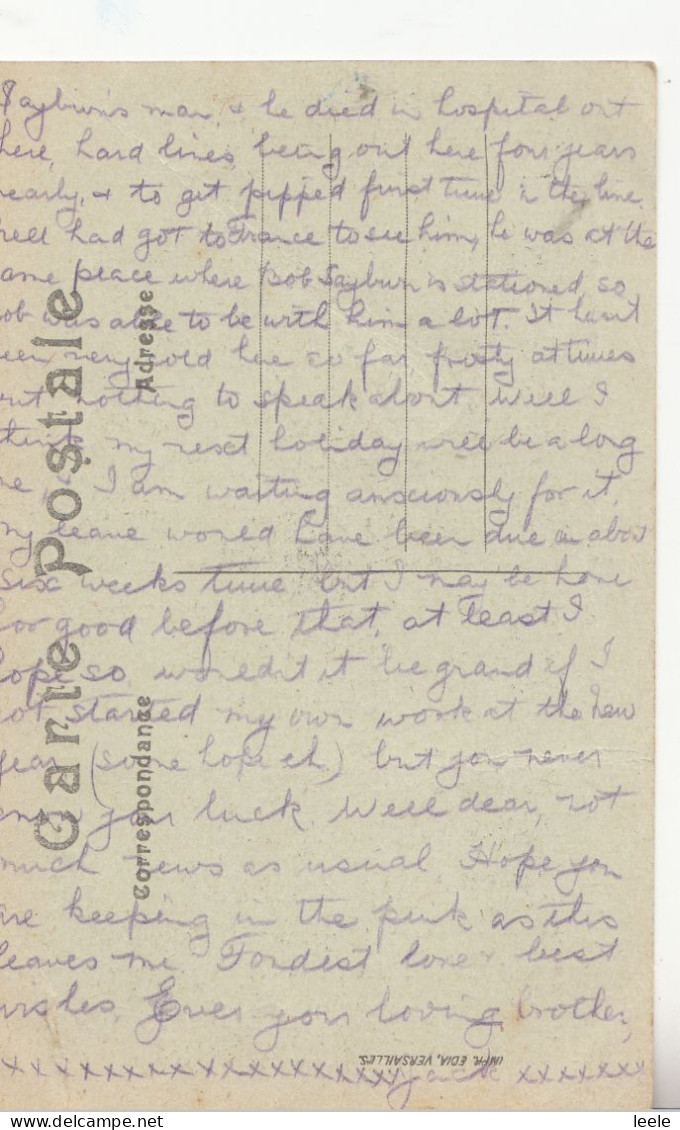 Sayburn's man, & he died in hospital out
here, hard lines being out here four years
nearly, & to get pipped first time in the line.
had got to France to see him, he was at the
same place where Bob Sayburn is stationed, so
Bob was able to be with him a lot. It hasn't
been very cold here so far frosty at times
but nothing to speak about. Well I
think my next holiday will be a long
one, & I am waiting anxiously for it,
my leave would have been due in about
six weeks time, but I may be home
for good before that, at least I
hope so, wouldn't it be grand if I
got started my own work at the New
Year (some hope eh) but you never
know your luck. Well dear, not
much news as usual. Hope you
are keeping in the pink as this
leaves me. Fondest love & best
wishes, Ever your loving brother,
xxxxxxxxxxxxxxxxx Jack xxxxxxx
Carte Postale
Correspondance
Adresse
IMPR. EDIA, VERSAILLES.
leele